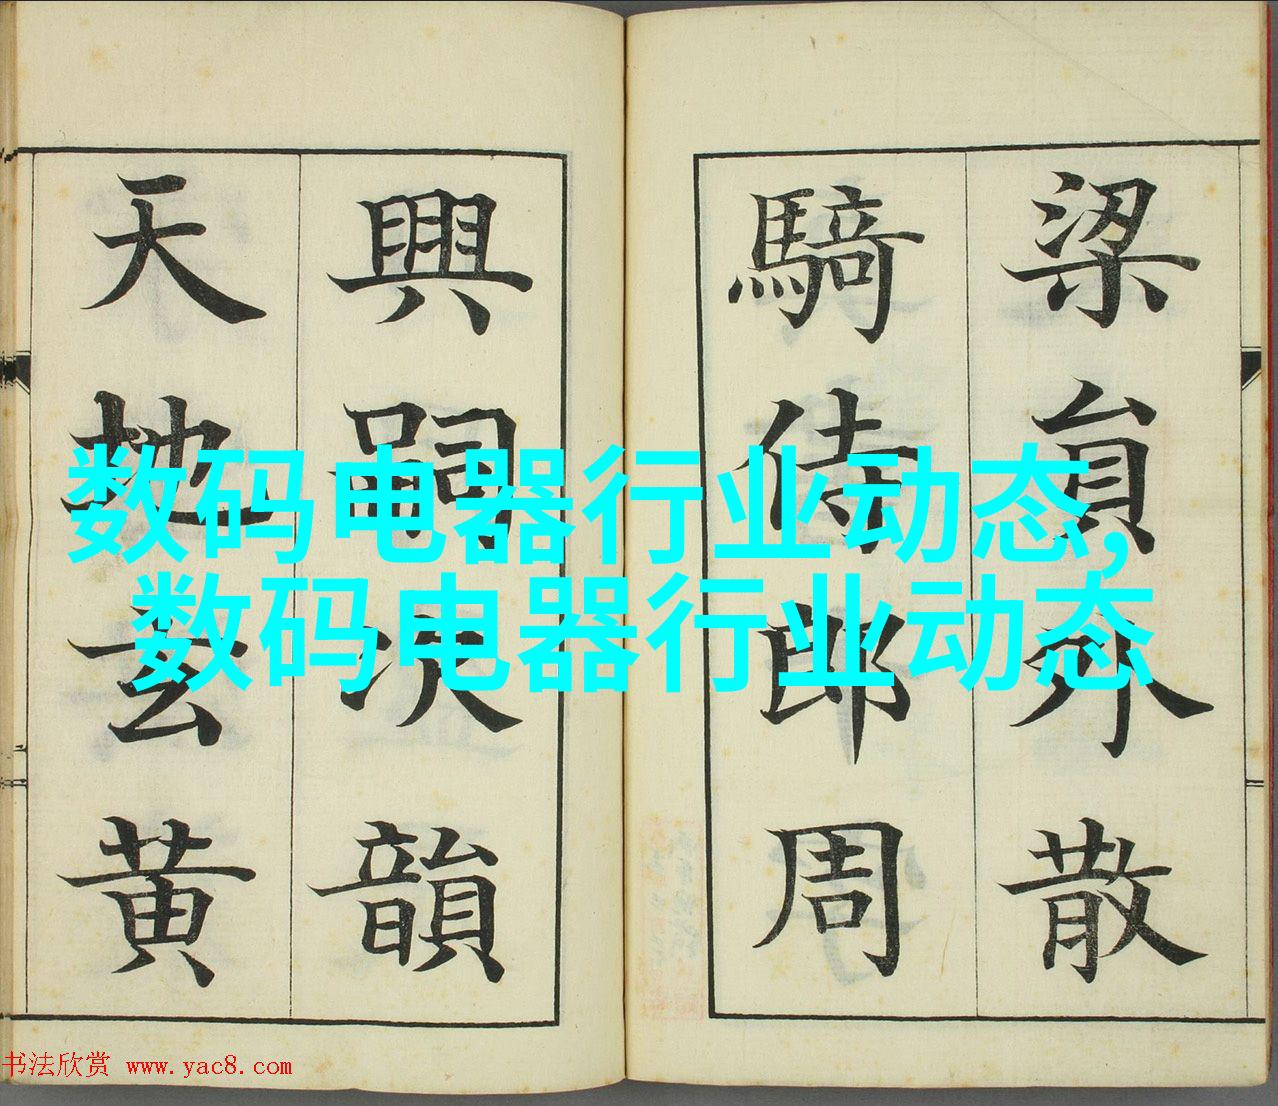 梁貟外散
騎侍郎周
興嗣次韻
天地玄黄
数码电器行业动态,
数码电器行业动态
书法欣赏 www.yac8.com